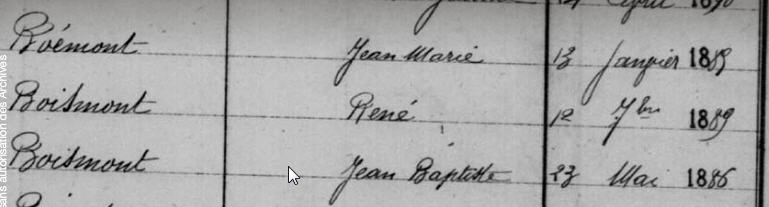 Avril 1890
Boémont Jean Marie 13 Janvier 1889
Boismont René 12 7bre 1889
Boismont Jean Baptiste 23 Mai 1886
sans autorisation des Archives